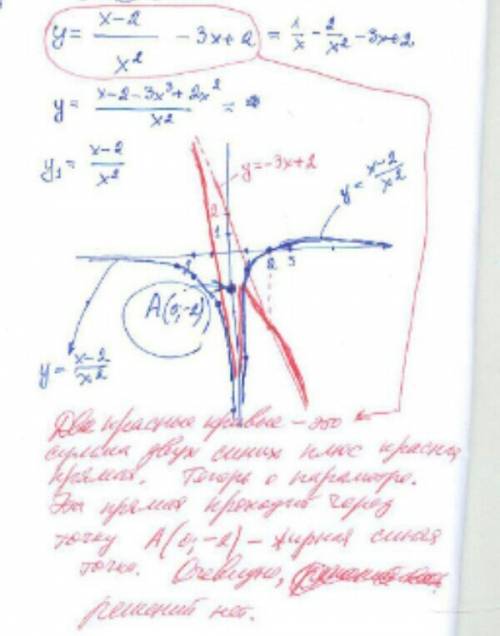 y = (x-2)/x² - 3x+2 = 1/x - 2/x² - 3x+2
y = (x-2-3x³+2x²)/x² =
y₁ = (x-2)/x²
y=-3x+2
y = (x-2)/x²
2
1
2 3
A(0,-2)
y = (x-2)/x²
Две красные кривые - это
сумма двух синих плюс красная
прямая. Теперь о параметре.
Эта прямая проходит через
точку A(0,-2) - жирная синяя
точка. Очевидно,
решений нет.